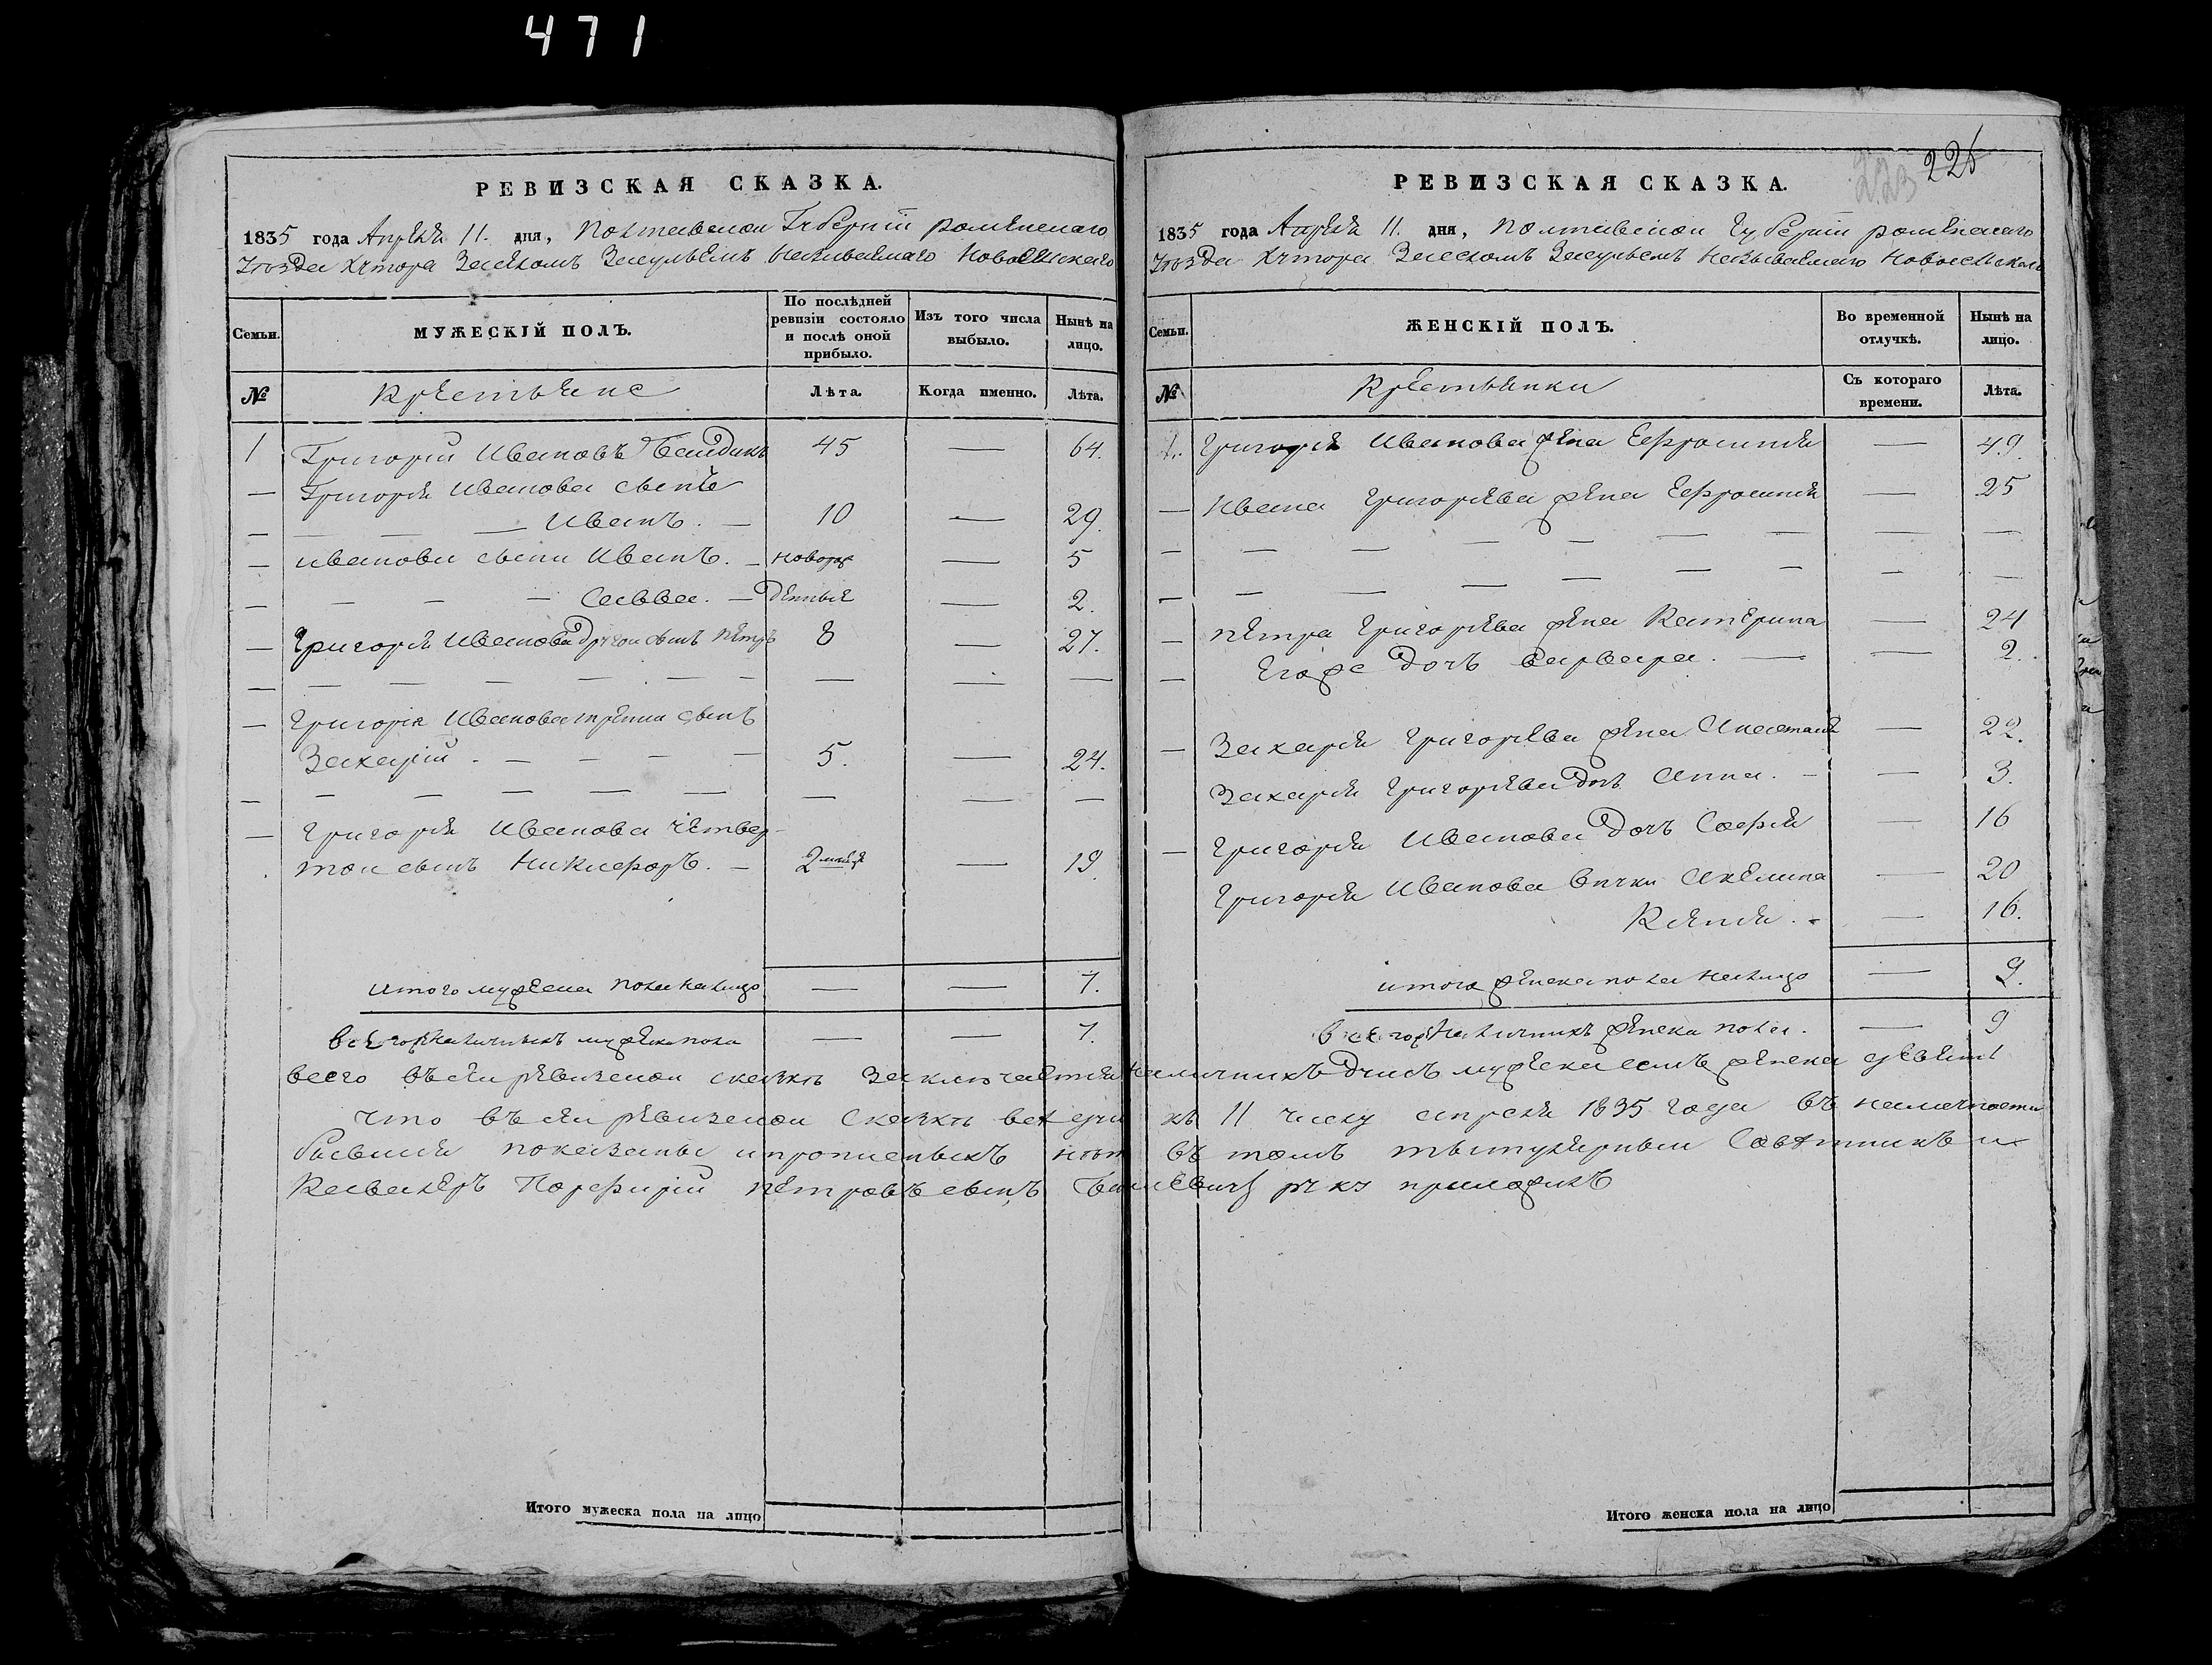 471
РЕВИЗСКАЯ СКАЗКА.
1835 года Апреля 11. дня, Полтавской Губернии роменского
Уезда Хутора Заселкомъ Засульемъ называемаго Новосельского
Семьи.
МУЖЕСКІЙ ПОЛЪ.
По послѣдней ревизіи состояло и послѣ оной прибыло.
Изъ того числа выбыло.
Нынѣ на лицо.
№
Крестьяне
Лѣта.
Когда именно.
Лѣта.
1 Григорій Ивановъ 45 — 64.
— Григорія Иванова сынъ
— Иванъ. — 10 — 29.
— иванова сыни Иванъ. — новорож 5
— Савва. — 2.
— Григорія Иванова Другои сынъ Петръ 8 — 27.
— Григорія Иванова третіи сынъ
Захарій. — 5. — 24.
— Григорія Иванова четвер-
тои сынъ Никифоръ. — 2 — 19.
итого мужеска пола налицо — — 7.
всегожъ наличныхъ мужеска пола — — 7.
Итого мужеска пола на лицо
РЕВИЗСКАЯ СКАЗКА.
223 226
1835 года Апреля 11. дня, Полтавской Губерніи роменскаго
Уезда Хутора Заселкомъ Засульемъ называемаго Новосельскаго
Семьи.
ЖЕНСКІЙ ПОЛЪ.
Во временной отлучкѣ.
Нынѣ на лицо.
№
Крестьянки
Съ котораго времени.
Лѣта.
1. Григорія Иванова жена Ефросинія — 49.
— Ивана Григорьева жена Ефросинія — 25
— Петра Григорьева жена Катерина — 24
— Егоже дочъ варвара. — 2.
— Захарія Григорьева жена Анастасія — 22.
Захарія Григорьева дочъ Анна. — 3.
— Григорія Иванова дочъ Софія — 16
Григорія Иванова внучки Акелина — 20
Ксенія. — 16.
итого женска пола налицо — 9.
всегожъ наличныхъ женска пола. — 9
всего въ сей ревизской сказкѣ заключается наличныхъ душъ мужеска семъ женска девять
что въ сей ревизской Сказкѣ все души къ 11 числу апреля 1835 года въ наличности
бывшія показаны и прописныхъ нѣтъ въ томъ тытулярный Совѣтникъ и
Кавалеръ Порфирій Петровъ сынъ руку приложилъ
Итого женска пола на лицо